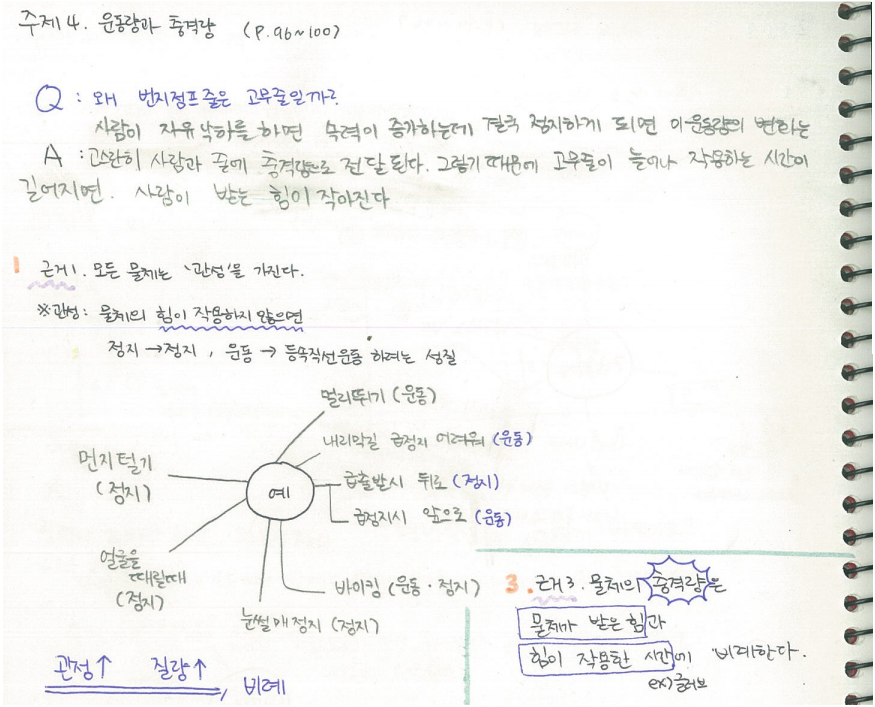 주제 4. 운동량과 충격량 (P.96~100)
Q : 왜 번지점프 줄은 고무줄일까?
사람이 자유낙하를 하면 속력이 증가하는데 결국 정지하게 되면 이 운동량의 변화는
A : 고스란히 사람과 줄에 충격량으로 전달된다. 그렇기 때문에 고무줄이 늘어나 작용하는 시간이
길어지면. 사람이 받는 힘이 작아진다
1 근거1. 모든 물체는 '관성'을 가진다.
※관성: 물체의 힘이 작용하지 않으면
정지 → 정지, 운동 → 등속직선운동 하려는 성질
멀리뛰기 (운동)
내리막길 급정지 어려워 (운동)
먼지털기
(정지)
예
급출발시 뒤로 (정지)
급정지시 앞으로 (운동)
얼굴을
때릴때
(정지)
바이킹 (운동·정지)
눈썰매 정지 (정지)
관성↑ 질량↑, 비례
3. 근거3. 물체의 충격량은
물체가 받은 힘과
힘이 작용한 시간에 비례한다.
ex) 글러브